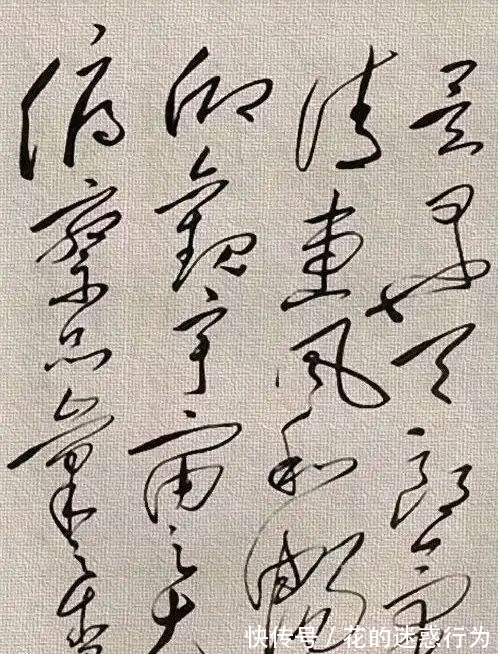 是日也天朗氣
清惠風和暢
仰觀宇宙之大
俯察品類之盛
快传号 / 花的迷惑行为